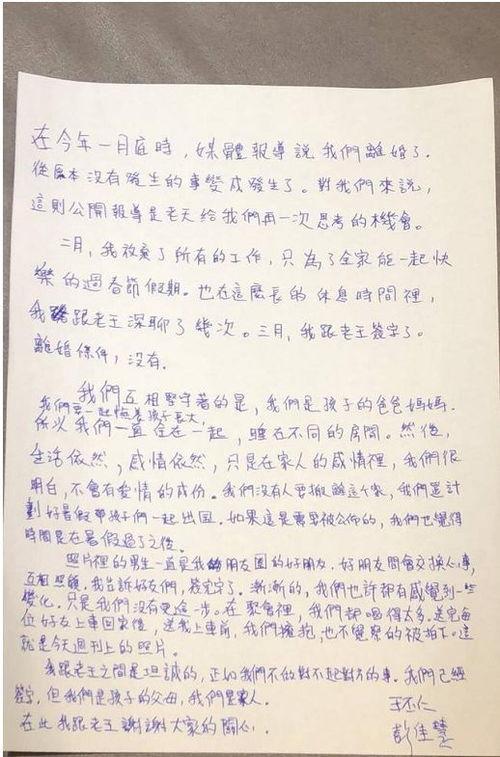 在今年一月底時，媒體報導說我們離婚了．
從原本沒有發生的事變成發生了。對我們來說，
這則公開報導是老天給我們再一次思考的機會。
二月，我放棄了所有的工作，只為了全家能一起快
樂的過春節假期。也在這麼長的休息時間裡，
我跟老王深聊了幾次。三月，我跟老王簽字了。
離婚條件，沒有．
我們互相堅守著的是，我們是孩子的爸爸媽媽．
我們要一起陪著孩子長大，
所以我們一直住在一起，睡在不同的房間。然後，
生活依然，感情依然，只是在家人的感情裡，我們很
明白，不會有愛情的成份。我們沒有人要搬離這個家，我們還計
劃好暑假帶孩子們一起出國．如果這是需要被公佈的，我們也覺得
時間是在暑假過了之後。
照片裡的男生一直是我朋友圈的好朋友．好朋友間會交換心事，
互相照顧，我告訴好友們，簽完字了。漸漸的，我們也許都有感覺到一些
變化。只是我們沒有更進一步。在聚會裡，我們都喝得太多。送完每
位好友上車回家後，送我上車前，我們擁抱，也不覺察的被拍下。這
就是今天週刊上的照片。
我跟老王之間是坦誠的，正如我們不做對不起對方的事．我們已經
簽字，但我們是孩子的父母，我們是家人。
在此我跟老王謝謝大家的關心．
王丕仁
彭佳慧